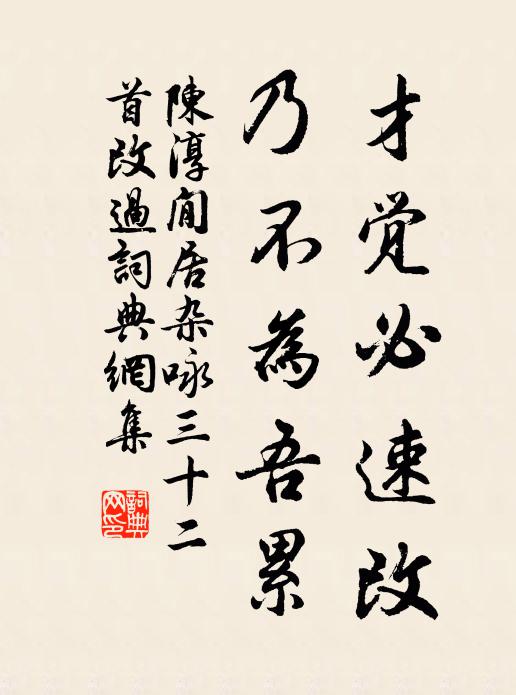 才觉必速改
乃不為吾累
陳淳閒居杂咏三十二
首改過詞典網集
詞典
网印